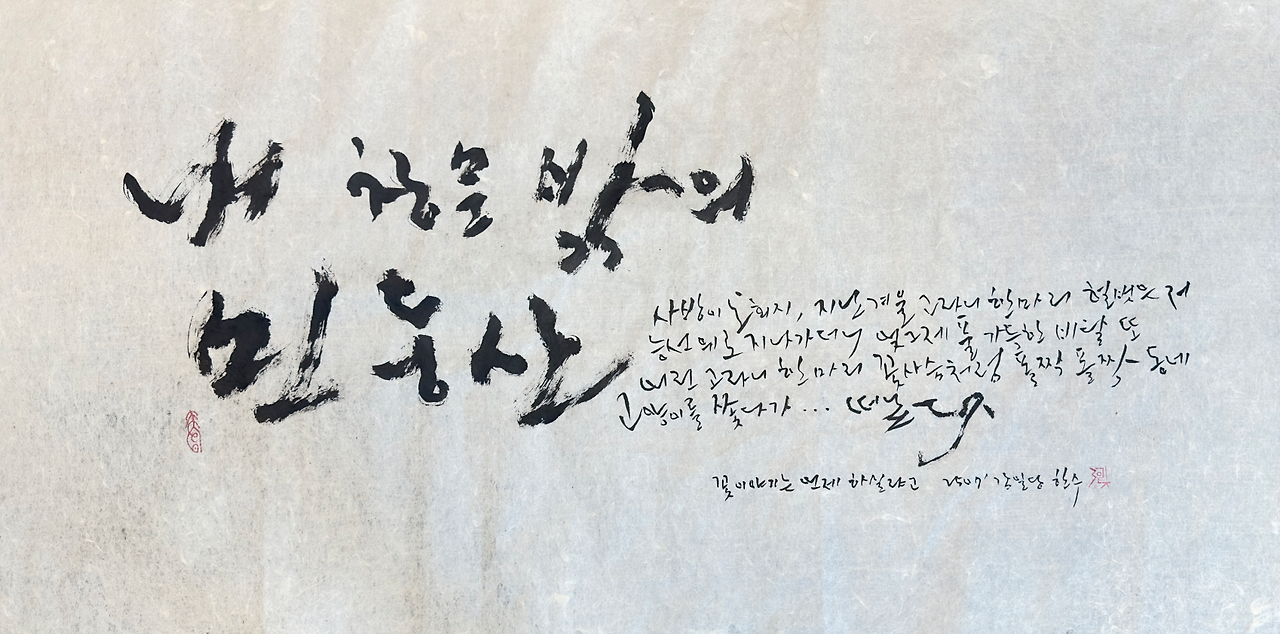 내 창문 밖의
민둥산
사방이 환하지, 지난겨울 고라니 한마리 헐벗은 저
능선 위로 지나가더니 엊그제 풀 가득한 비탈 또
어린 고라니 한 마리 꽃사슴처럼 폴짝 폴짝 동네
고양이를 쫓다가 ... 떠났다
꽃이야기는 언제 하실라고 2507' 강밀당 한수